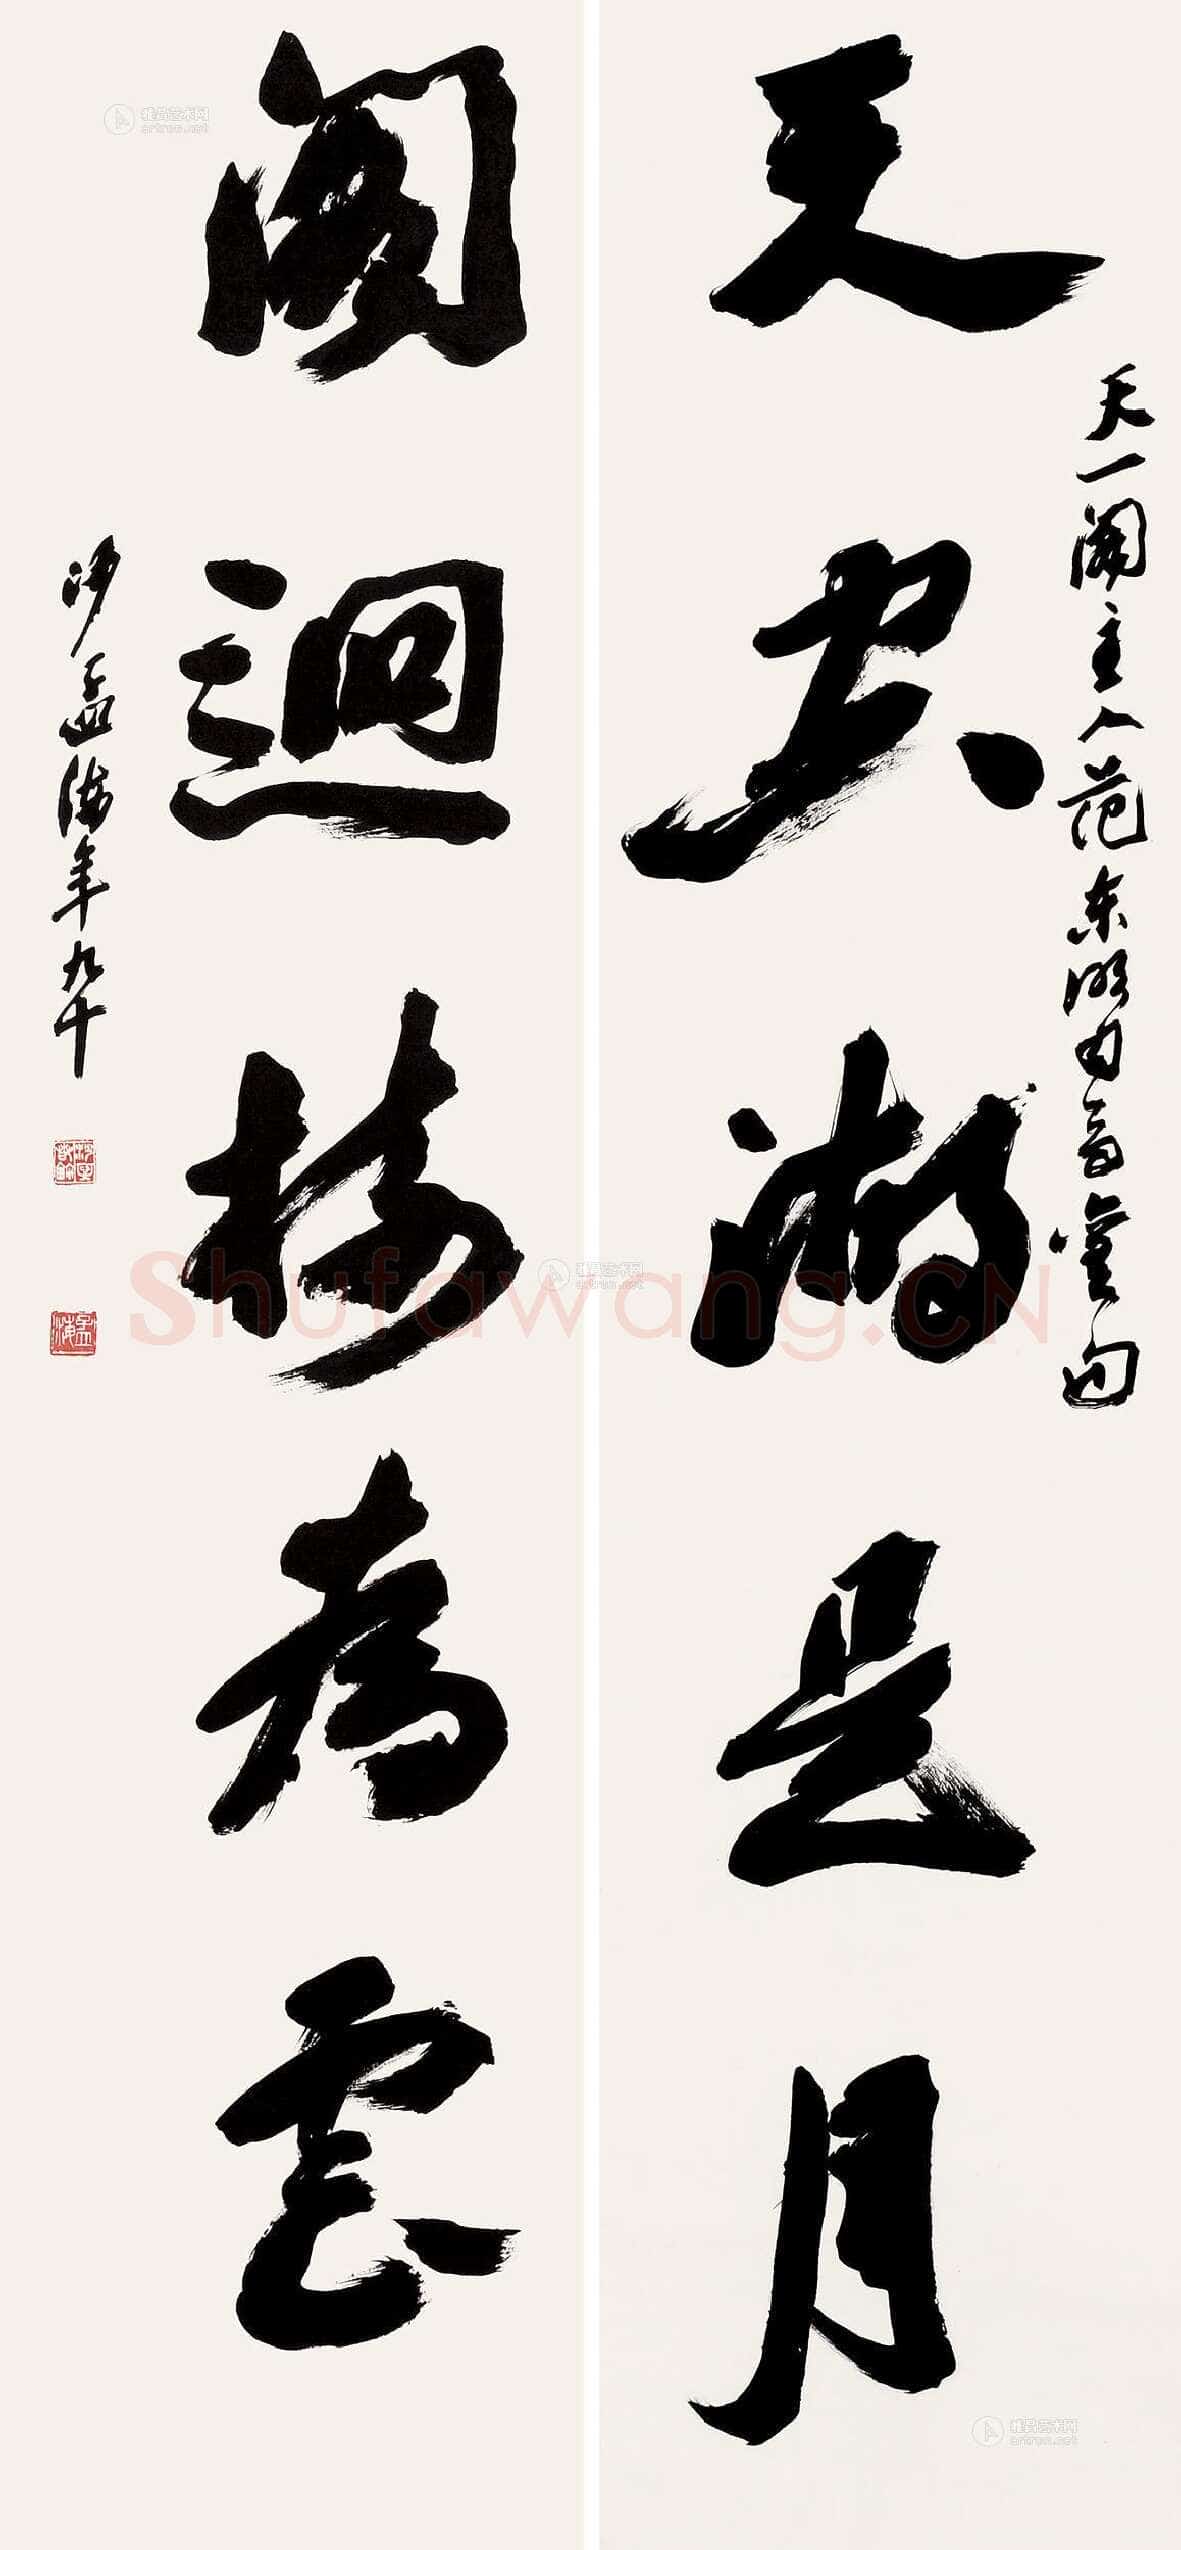 天尽湖是月
天一閣主人范东明句
閣迥楼為雲
沙孟海年九十
孟海
Shufawang.CN
雅昌艺术网
artron.net
雅昌艺术网
artron.net
雅昌艺术网
artron.net